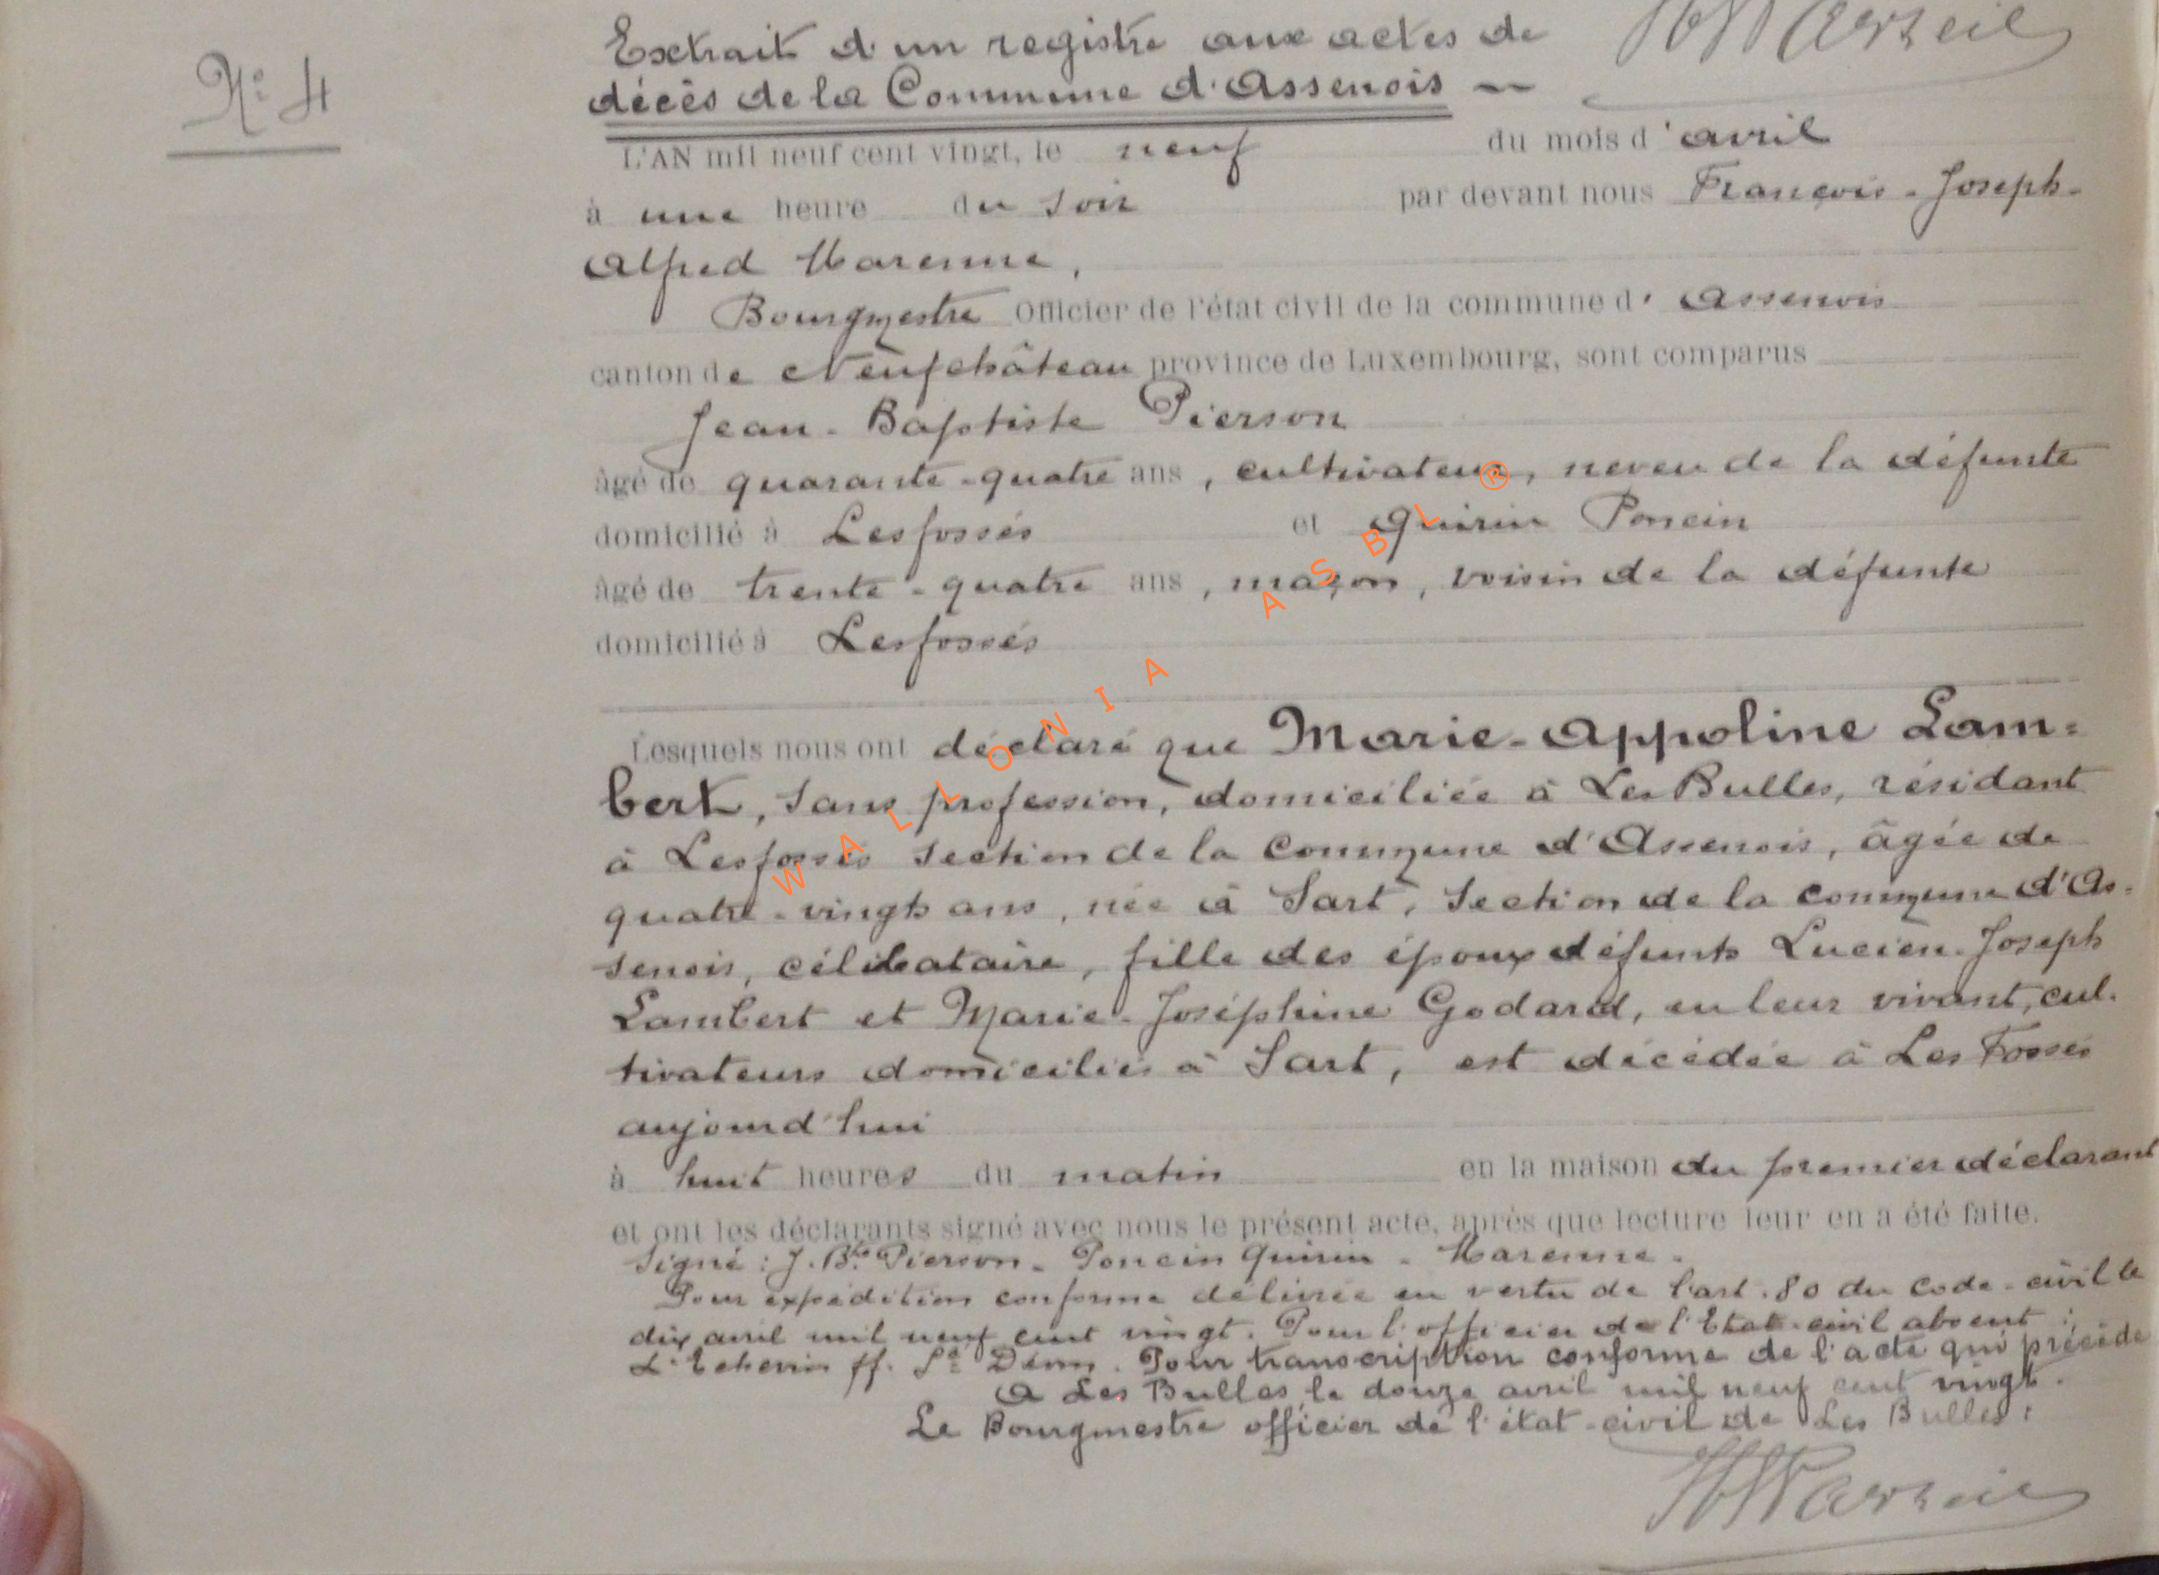 Extrait d'un registre aux actes de
décès de la Commune d'Assenois
N° 4
L'AN mil neuf cent vingt, le neuf du mois d'avril
à une heure du soir par devant nous François-Joseph-
Alfred Marenne,
Bourgmestre Officier de l'état civil de la commune d'Assenois
canton de Neufchâteau province de Luxembourg, sont comparus
Jean-Baptiste Pierson
âgé de quarante-quatre ans, cultivateur, neveu de la défunte
domicilié à Lesfossés et Quirin Poncin
âgé de trente-quatre ans, maçon, voisin de la défunte
domicilié à Lesfossés
Lesquels nous ont déclaré que Marie-Appoline Lam=
bert, sans profession, domiciliée à Les Bulles, résidant
à Lesfossés section de la commune d'Assenois, âgée de
quatre-vingts ans, née à Sart, section de la commune d'As-
senois, célibataire, fille des époux défunts Lucien-Joseph
Lambert et Marie-Joséphine Godard, en leur vivant, cul-
tivateurs domiciliés à Sart, est décédée à Les Fossés
aujourd'hui
à huit heures du matin en la maison du premier déclarant
et ont les déclarants signé avec nous le présent acte, après que lecture leur en a été faite.
Signé: J. Bte Pierson - Poncin Quirin - Marenne.
Pour expédition conforme délivrée en vertu de l'art. 80 du code-civil le
dix avril mil neuf cent vingt. Pour l'officier de l'Etat-civil absent:
L'Echevin ff. Pour transcription conforme de l'acte qui précède
A Les Bulles, le douze avril mil neuf cent vingt.
Le Bourgmestre officier de l'état-civil de Les Bulles:
WALLONIA ASBL ®